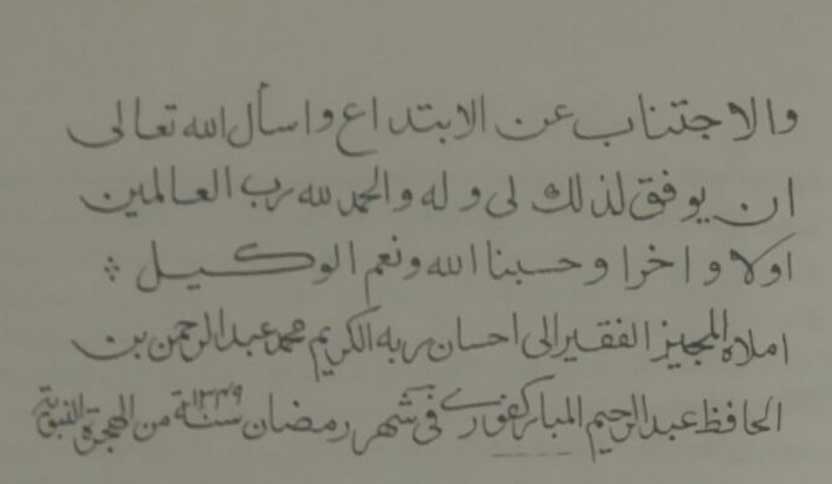 والاجتناب عن الابتداع واسأل الله تعالى
ان يوفق لذلك لى وله والحمد لله رب العالمين
اولا واخرا وحسبنا الله ونعم الوكيل ؞
املاه المجيز الفقير الى احسان ربه الكريم محمد عبد الرحمن بن
الحافظ عبد الرحيم المباركفورى فى شهر رمضان سنة ١٣٤٩ من الهجرة النبوية